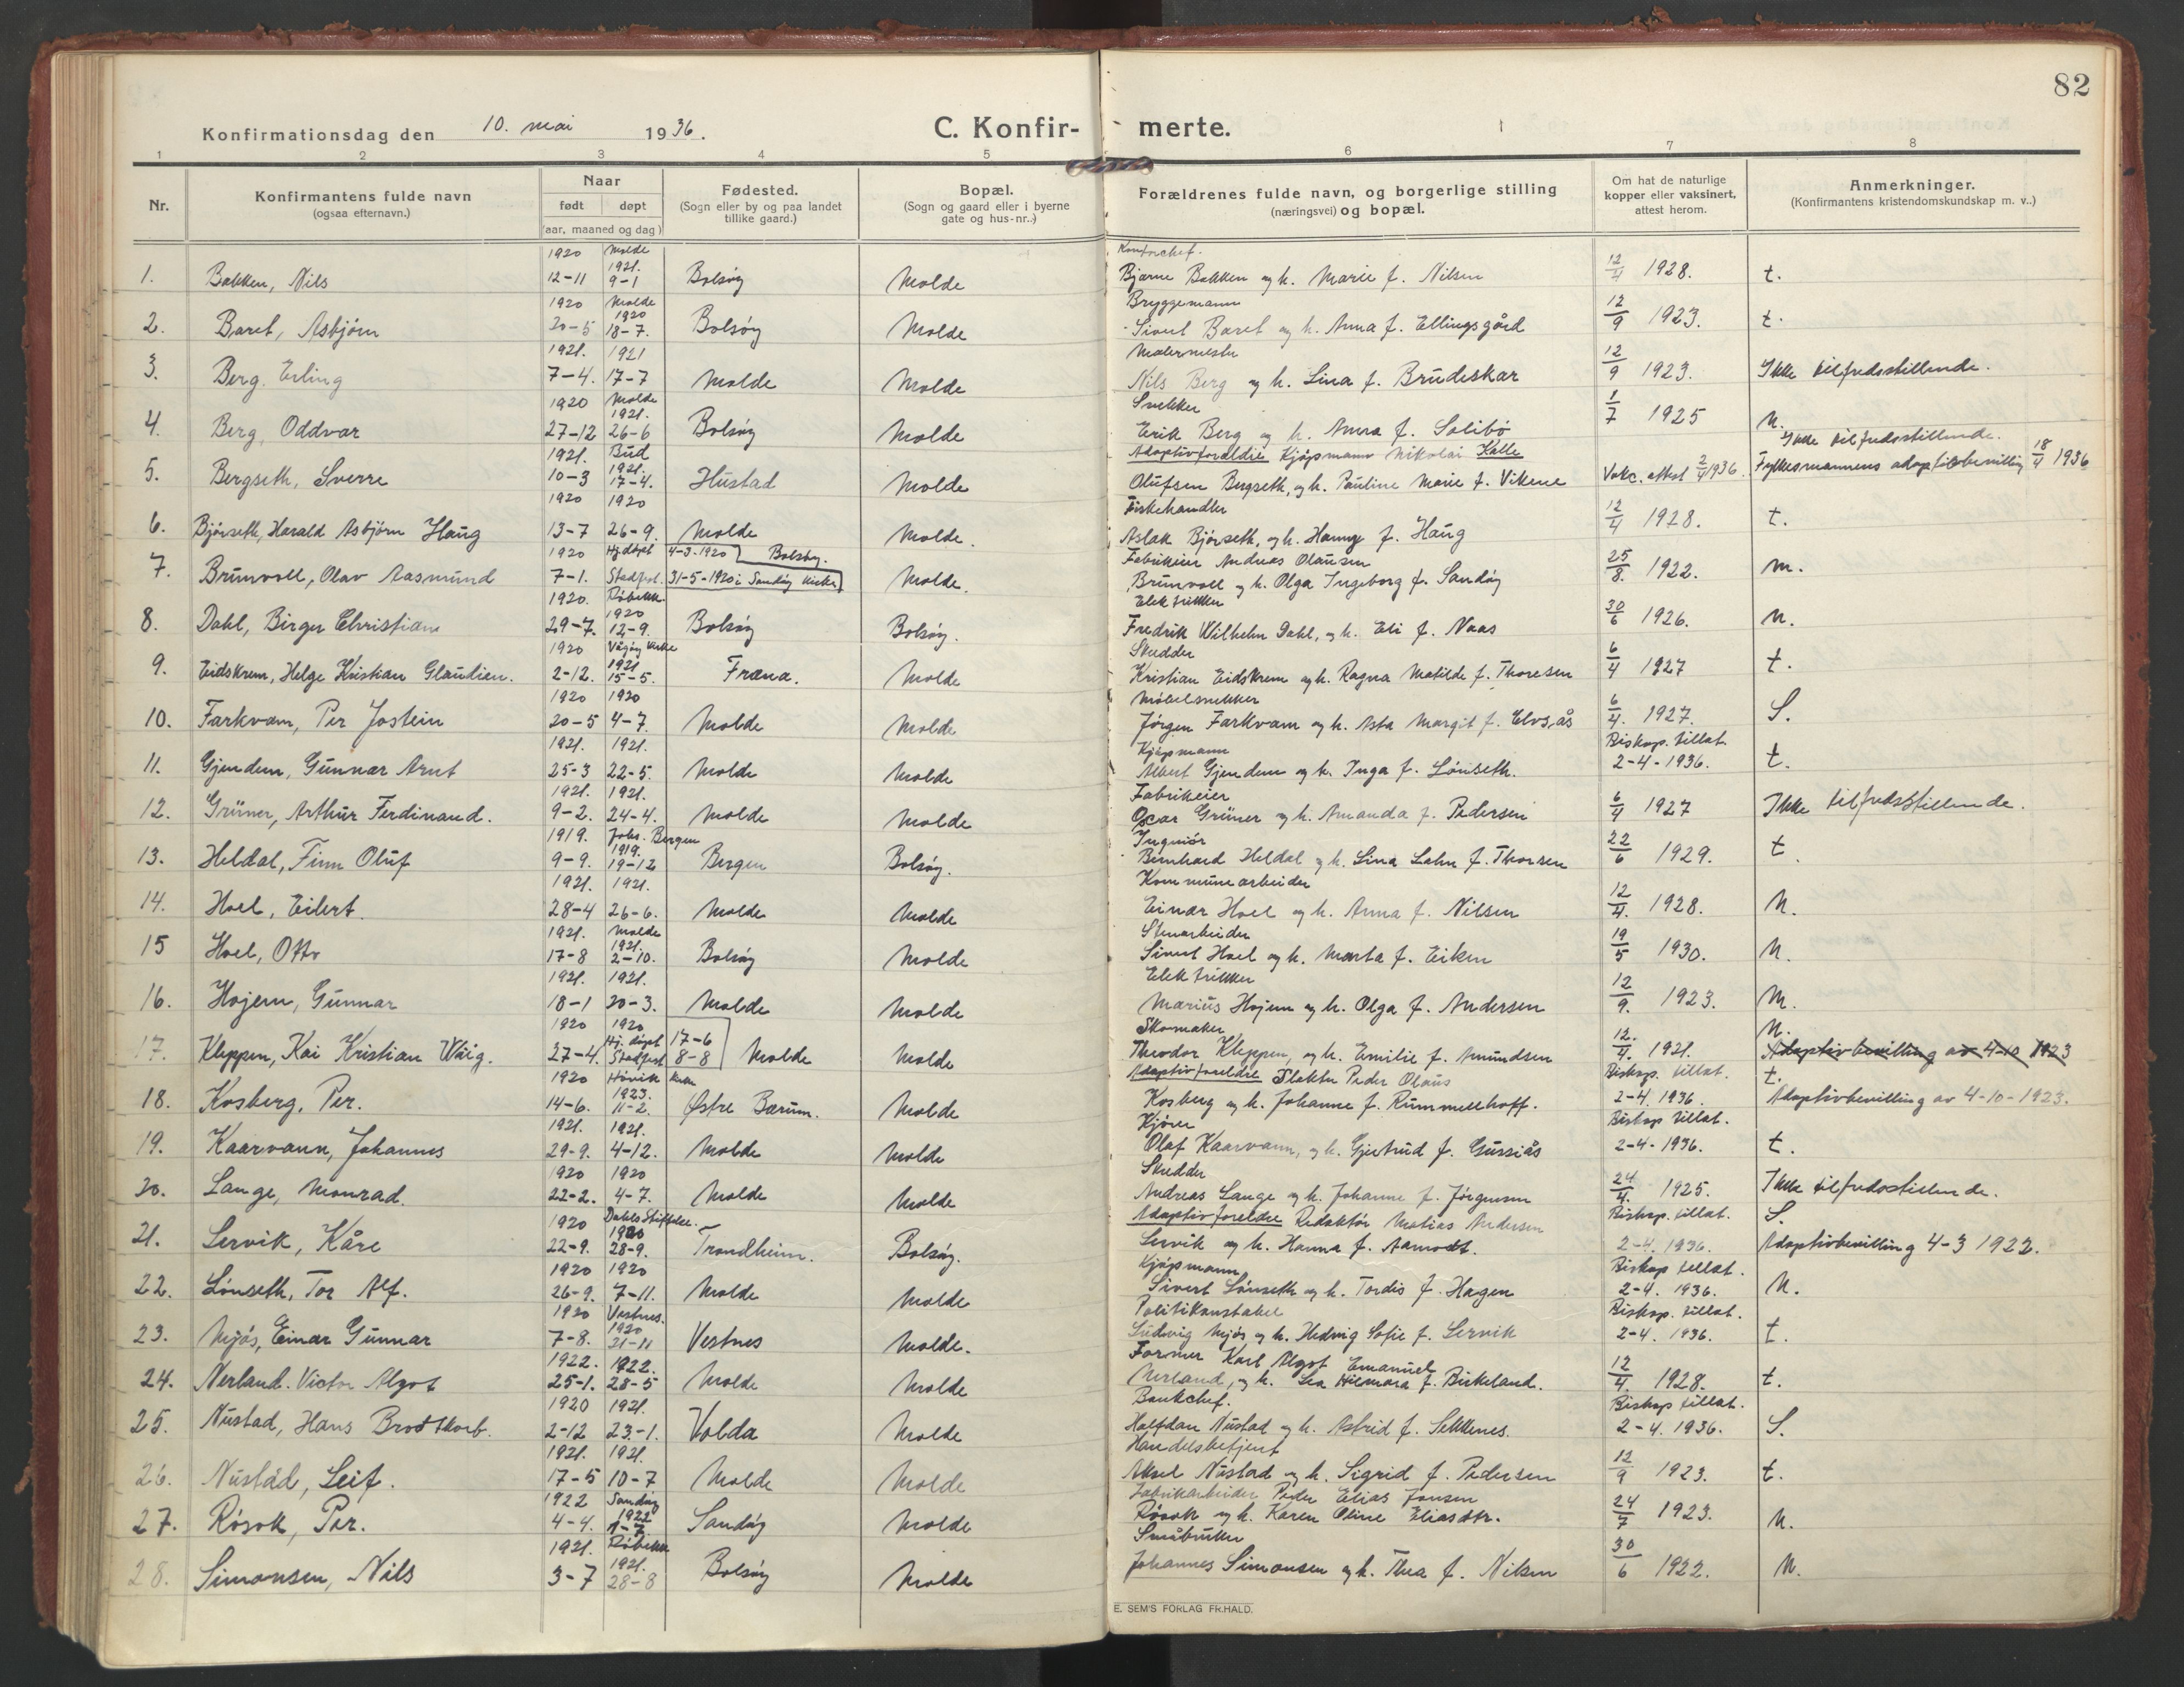 82
Konfirmationsdag den 10. mai 1936.
C. Konfir- merte.
1 2 3 4 5 6 7 8
Nr.
Konfirmantens fulde navn
(ogsaa efternavn.)
Naar
født døpt
(aar, maaned og dag)
Fødested.
(Sogn eller by og paa landet
tillike gaard.)
Bopæl.
(Sogn og gaard eller i byerne
gate og hus-nr..)
Forældrenes fulde navn, og borgerlige stilling
(næringsvei) og bopæl.
Om hat de naturlige
kopper eller vaksinert,
attest herom.
Anmerkninger.
(Konfirmantens kristendomskundskap m. v..)
1920 Molde 1921. Kontorchef.
1. Bakken, Nils 12-11 9-1 Bolsøy Molde Bjarne Bakken og h. Marie f. Nilsen 12/4 1928. t.
1920 Molde 1920 Bryggemann
2. Baret, Asbjörn 20-5 18-7. Bolsöy Molde Sivert Baret og h. Anna f. Ellingsgård 12/9 1923. t.
1921. 1921 Malermester
3. Berg, Erling 7-4. 17-7 Molde Molde Nils Berg og h. Lina f. Brudeskar 12/9 1923. Ikke tilfredsstillende.
1920 Molde 1921. Snekker
4. Berg, Oddvar 27-12 26-6 Bolsöy Molde Erik Berg og h. Anna f. Solibö 1/7 1925 N.
1921. Bud 1921. Adoptivforeldre Kjöpmann Nikolai Kalle Ikke tilfredsstillende.
5. Bergseth, Sverre 10-3 17-4. Hustad Molde Olufsen Bergseth, og h. Pauline Marie f. Vikene Vakc. attest 2/4 1936. Fylkesmannens adoptivbevilling 18/4 1936
1920 1920 Fiskehandler
6. Björseth, Harald Asbjörn Haug 13-7 26-9. Molde Molde. Aslak Björseth, og h. Hanny f. Haug 12/4 1928. t.
1920 Hj.döpt 4-3-1920 Bolsöy. Fabrikeier Andreas Olausen
7. Brunvoll, Olav Aasmund 7-1. Stadfest. 31-5-1920 i Sandöy kirke Molde. Brunvoll og h. Olga Ingeborg f. Sandöy 25/8. 1922. M.
1920. Röbekk. 1920 Elektrikker
8. Dahl, Birger Christian 29-7. 12-9. Bolsöy Bolsöy. Fredrik Wilhelm Dahl, og h. Eli f. Naas 30/6 1926. N.
1920 Vågöy kirke 1921 Skredder
9. Eidskrem, Helge Kristian Glaudien. 2-12. 15-5. Fræna. Molde Kristian Eidskrem og h. Ragna Matilde f. Thoresen 6/4 1927 t.
1920 1920 Möbelsnekker
10. Farkvam, Per Jostein 20-5 4-7. Molde Molde Jörgen Farkvam og h. Asta Margit f. Elvsås 6/4. 1927. S.
1921. 1921. Kjöpmann Biskop. tillat.
11. Gjendem, Gunnar Arnt 25-3 22-5. Molde Molde Albert Gjendem og h. Inga f. Lönseth. 2-4-1936. t.
1921. 1921. Fabrikeier
12. Grüner, Arthur Ferdinand. 9-2. 24-4. Molde Molde Oscar Grüner og h. Amanda f. Pedersen 6/4 1927 Ikke tilfredsstillende.
1919. Johs. Bergen 1919. Ingeniör
13. Heldal, Finn Oluf 9-9. 19-12 Bergen Bolsöy. Bernhard Heldal og h. Lina Lahn f. Thorsen 22/6 1929. t.
1921. 1921. Kommunearbeider
14. Hoel, Eilert. 28-4 26-6. Molde Molde Einar Hoel og h. Anna f. Nilsen 12/4. 1928. N.
1921. Molde 1921. Stenarbeider
15 Hoel, Otto 17-8 2-10. Bolsöy Molde Sivert Hoel og h. Marta f. Eiken 19/5 1930. N.
1921. 1921. Elektrikker
16. Hojem, Gunnar 18-1 20-3. Molde Molde Marius Hojem og h. Olga f. Andersen 12/9. 1923. M.
1920 1920 Hj. döpt 17-6 Skomaker N.
17. Kleppen, Kai Kristian Wiig. 27-4. Stadfest 8-8 Molde Molde Theodor Kleppen, og h. Emilie f. Amundsen 12./4. 1921. Adoptivbevilling av 4-10 1923
1920 Hövik kirke 1923. Adoptivforeldre Slakter Peder Olaus Biskop. tillat. t.
18. Kosberg, Per. 14-6. 11-2. Østre Bærum. Molde Kosberg og h. Johanne f. Rummelhoff. 2-4. 1936. Adoptivbevilling av 4-10-1923.
1921. 1921. Kjörer Biskop tillat.
19. Kaarvann, Johannes 29-9. 4-12. Molde Molde Olaf Kaarvann, og h. Gjertrud f. Gussiås 2-4-1936. t.
1920 1920 Skredder
20. Lange, Monrad. 22-2. 4-7. Molde Molde Andreas Lange og h. Johanne f. Jörgensen 24/4. 1925. Ikke tilfredsstillende.
1920 Dahls Stiftelse. 1920 Adoptivforeldre Redaktör Matias Andersen Biskop. tillat. S.
21. Lervik, Kåre 22-9. 28-9. Trondheim. Bolsöy. Lervik og h. Hanna f. Aamodt. 2-4. 1936. Adoptivbevilling 4-3 1922.
1920 1920 Kjöpmann Biskop tillat.
22. Lönseth, Tor Alf. 26-9. 7-11. Molde Molde Sivert Lönseth og h. Tordis f. Hagen 2-4. 1936. N.
1920 Vestnes. 1920 Politikonstabel Biskop. tillat.
23. Mjös, Einar Gunnar 7-8. 21-11 Vestnes Molde. Ludvig Mjös og h. Hedvig Sofie f. Lervik 2-4. 1936. t.
1922. 1922. Former Karl Algot Emanuel
24. Nerland. Victor Algot 25-1. 28-5 Molde Molde Nerland, og h. Lea Hilmara f. Birkeland. 12/4. 1928. t.
1920 1921. Bankchef. Biskop tillat.
25. Nustad, Hans Brodtkorb. 2-12 23.-1. Volda Molde Halfdan Nustad og h. Astrid f. Sekkenes. 2-4. 1936. S.
1921. 1921. Handelsbetjent
26. Nustad, Leif. 17-5 10-7 Molde Molde Aksel Nustad og h. Sigrid f. Pedersen 12/9 1923. t.
1922 Sandöy 1922 Fabrikarbeider Peder Elias Jensen
27. Rösok, Per. 4-4. 1-7. Sandöy Molde Rösok og h. Karen Oline Eliasdtr. 24/7 1923. N.
1921. Röbekk 1921. Småbruker
28. Simonsen, Nils 3-7 28-8 Bolsöy Molde Johannes Simonsen og h. Thea f. Nilsen 30/6 1922. N.
E. SEM'S FORLAG FR.HALD.